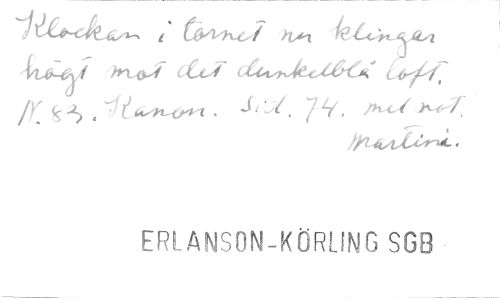 Klockan i tornet nu klingar
högt mot det dunkelblå loft.
N. 83. Kanon. Sid. 74. med not.
Martini.
ERLANSON-KÖRLING SGB